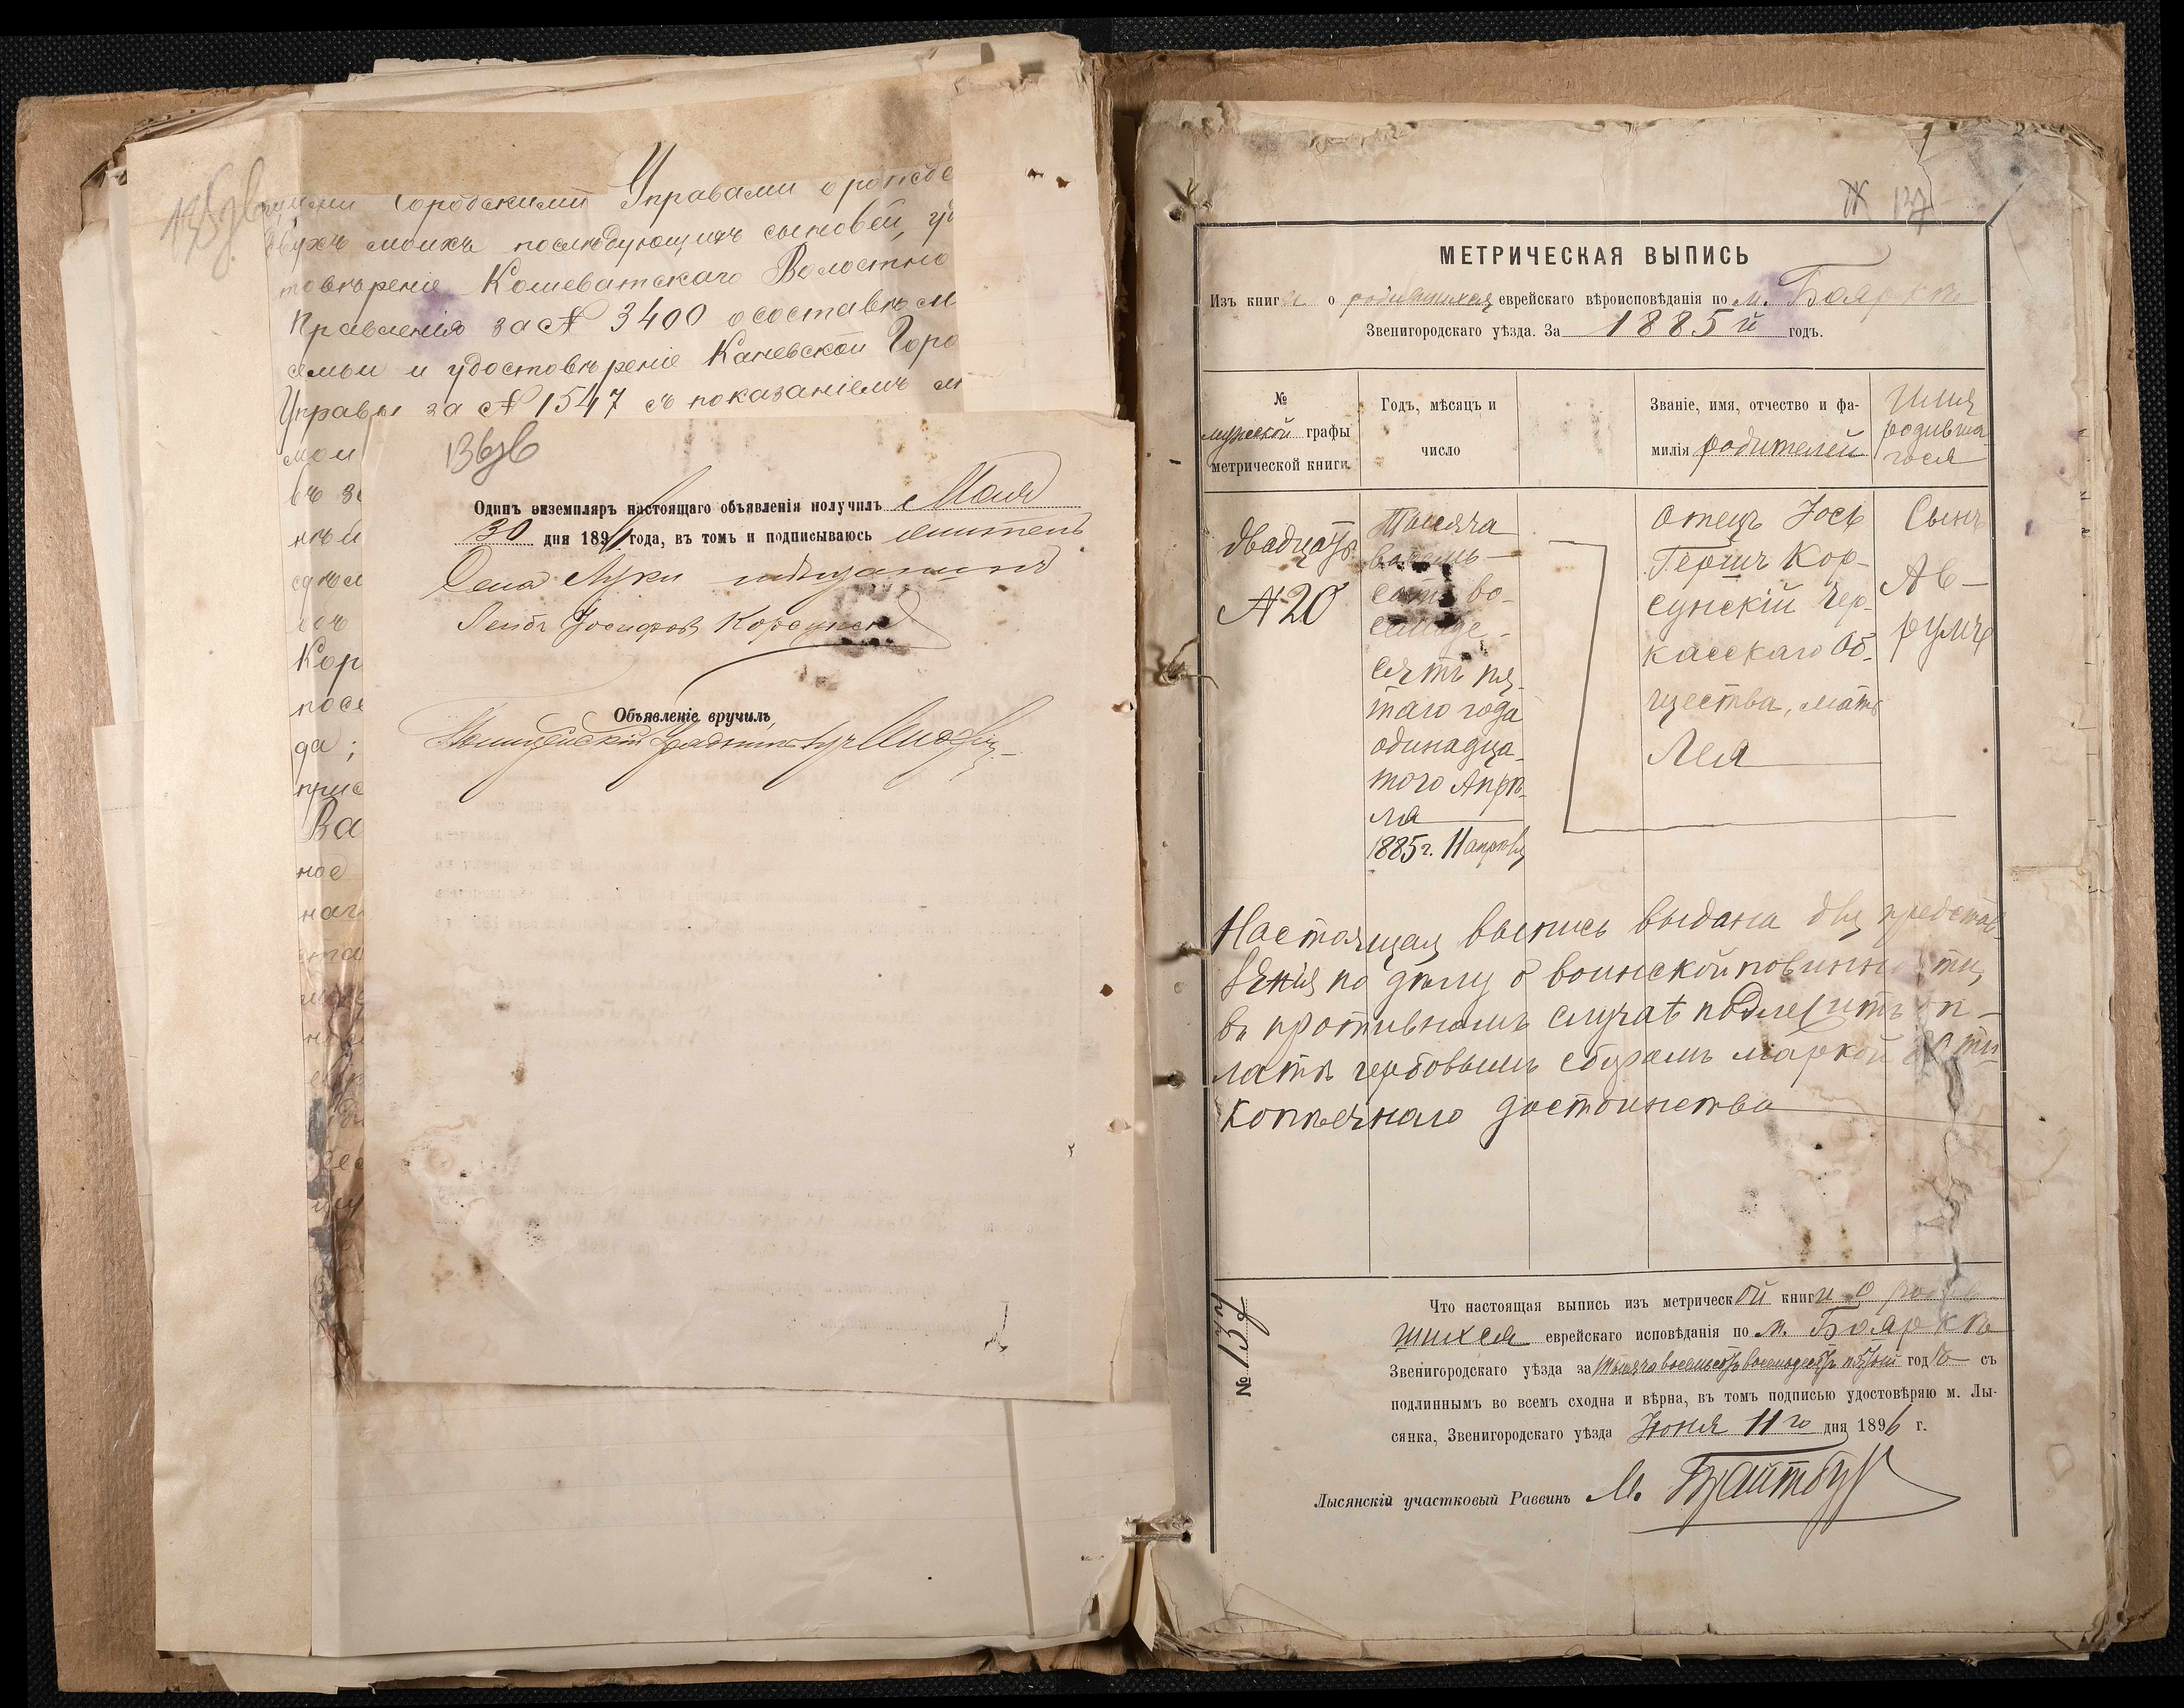 135об
щими Городскими Управами о рожде
двухъ моихъ послѣдующихъ сыновей, удо
товѣреніе Кошеватскаго Волостно
Правленія за № 3400 о составѣ м
семьи и удостовѣреніе Каневской Горо
Управы за № 1547 съ показаніемъ м
мои
въ
Кор
посе
да;
прис
Ва
ное
наг
136об
Одинъ экземпляръ настоящаго объявленія получилъ Мая
30 дня 1891 года, въ томъ и подписываюсь житель
Села Луки мѣщанинъ
Лейбъ Іосифовъ Корсунск
Объявленіе вручилъ
Полицейскій Урядникъ
137
МЕТРИЧЕСКАЯ ВЫПИСЬ
Изъ книги о родившихся еврейскаго вѣроисповѣданія по м. Бояркѣ
Звенигородскаго уѣзда. За 1885й годъ.
№
мужской графы
метрической книги.
Годъ, мѣсяцъ и
число
Званіе, имя, отчество и фа-
милія родителей
Имя
родивша-
гося
двадцать
№ 20
Тысяча
восемь-
сотъ во-
семьде-
сятъ пя-
таго года
одинадца-
того Апрѣ-
ля
1885 г. 11 апрѣля
отецъ Іось
Гершъ Кор-
сунскій Чер-
касскаго Об-
щества, мать
Лея
Сынъ
Ав-
румъ
Настоящая выпись выдана для представ-
ленія по дѣлу о воинской повинности,
въ противномъ случаѣ подлежитъ оп-
латѣ гербовымъ сборомъ маркой 80 ти
копѣечнаго достоинства
№ 137
Что настоящая выпись изъ метрической книги о родив
шихся еврейскаго исповѣданія по м. Бояркѣ
Звенигородскаго уѣзда за тысяча восемьсотъ восемьдесятъ пятый годъ съ
подлиннымъ во всемъ сходна и вѣрна, въ томъ подписью удостовѣряю м. Лы-
сянка, Звенигородскаго уѣзда Іюня 11го дня 1896 г.
Лысянскій участковый Раввинъ М.